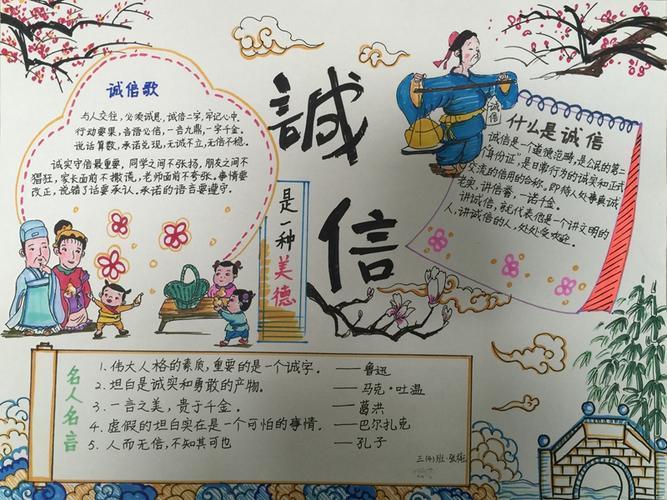 诚信歌
与人交往，公须诚恳，诚信二字，牢记心中。
行动要果，奋诺公信，一言九鼎，一字千金。
说话算数，承诺兑现，无诚不立，无信不稳。
诚实守信最重要，同学之间不张扬，朋友之间不
猖狂，家长面前不撒谎，老师面前不夸张。事情要
改正，说错了话要承认。承诺的语言要遵守。
誠信
是一种美德
诚信
什么是诚信
诚信是一个道德范畴，是公民的第二
"身份证"，是日常行为的诚实和正式
交流的信用的合称，即待人处事真诚
老实，讲信誉，一诺千金。
讲诚信，就代表他是一个讲文明的
人，讲诚信的人，处处受欢迎。
名人名言
1. 伟大人格的素质，重要的是一个诚字。——鲁迅
2. 坦白是诚实和勇敢的产物。——马克·吐温
3. 一言之美，贵于千金。——葛洪
4. 虚假的坦白实在是一个可怕的事情。——巴尔扎克
5. 人而无信，不知其可也——孔子
三(4)班·张